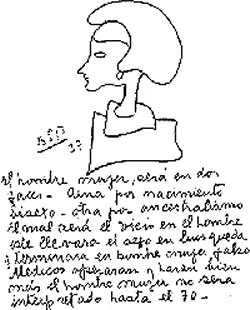 37
el hombre mujer, será en dos
faces - una por nacimiento
bisexo - otra por ancestralismo
el mal será el vicio en el hombre
este llevara el sexo en busqueda
y terminara en hombre mujer, falzo
Medicos operaran y haran bien
mas el hombre mujer no sera
interpretado hasta el 70 -